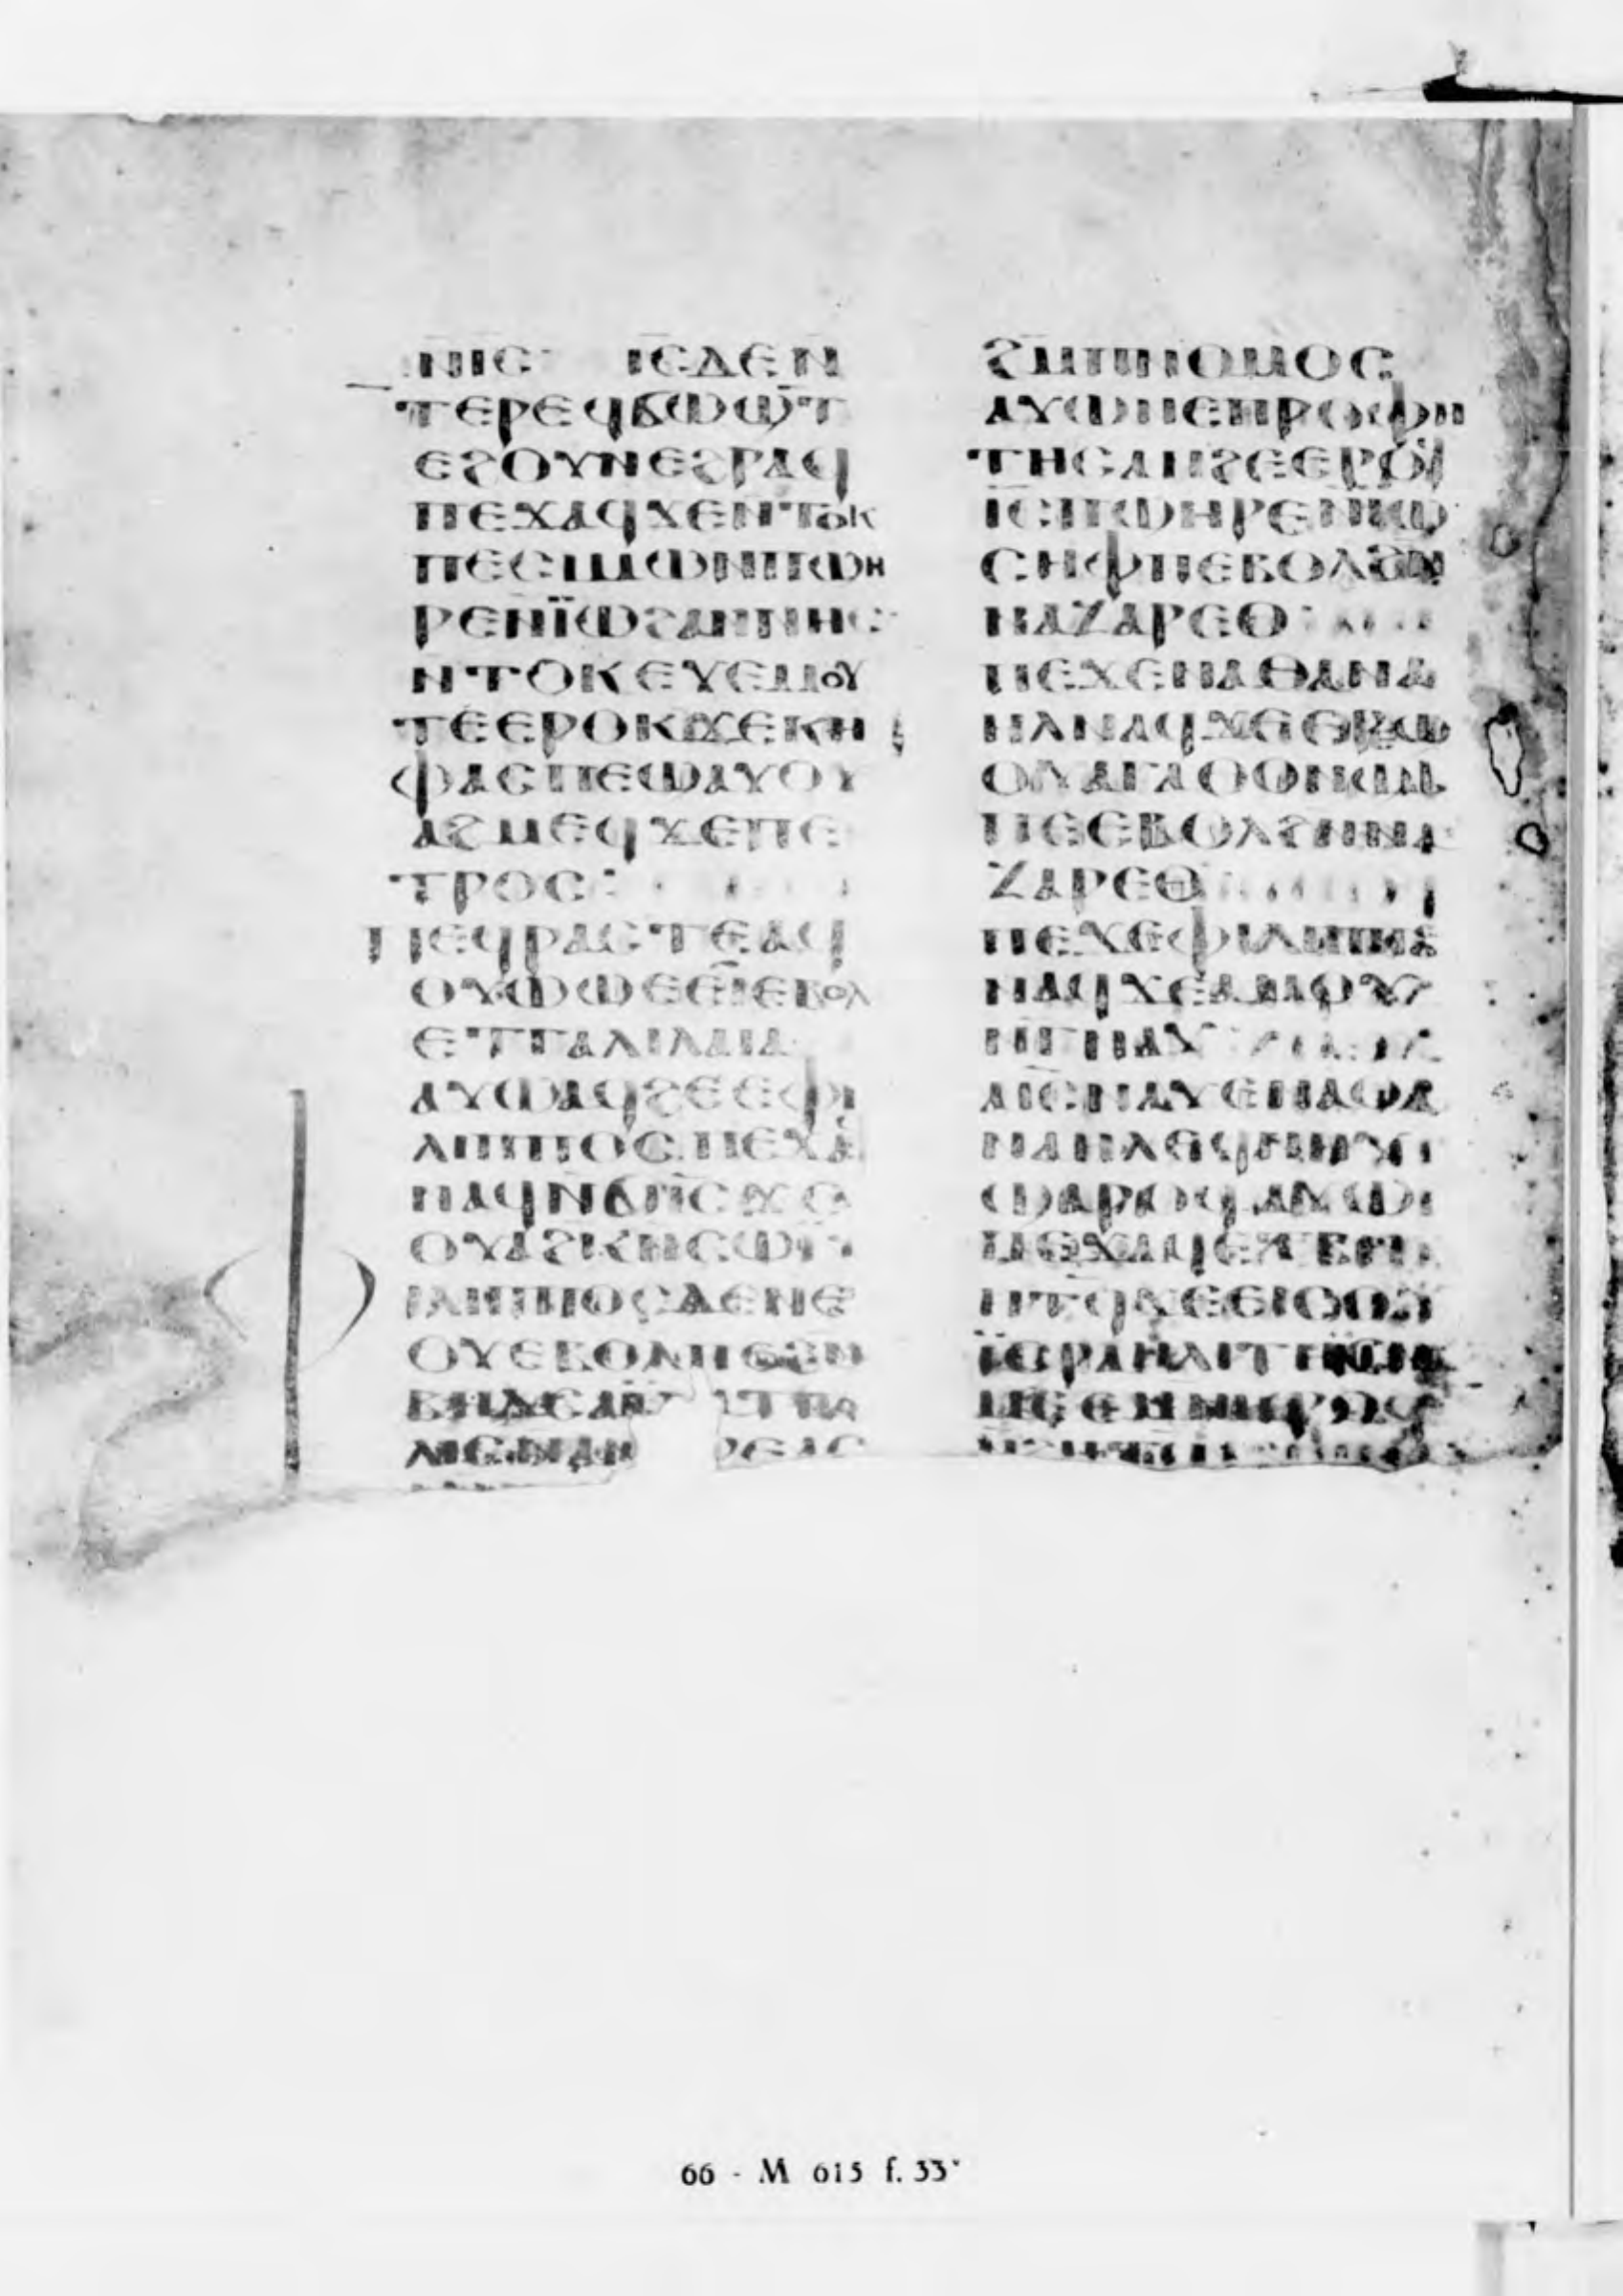 ⲛⲓⲥ ⲓⲥⲇⲉⲛ
ⲧⲉⲣⲉϥϭⲱϣⲧ
ⲉϩⲟⲩⲛⲉϩⲣⲁϥ
ⲡⲉϫⲁϥϫⲉⲛⲧⲟⲕ
ⲡⲉⲥⲓⲙⲱⲛⲡϣⲏ
ⲣⲉⲛⲓ̈ⲱϩⲁⲛⲛⲏⲥ
ⲛⲧⲟⲕⲉⲩⲉⲙⲟⲩ
ⲧⲉⲉⲣⲟⲕϫⲉⲕⲏ
ⲫⲁⲥⲡⲉϣⲁⲩⲟⲩ
ⲁϩⲙⲉϥϫⲉⲡⲉ
ⲧⲣⲟⲥ
ⲡⲉϥⲣⲁⲥⲧⲉⲁϥ
ⲟⲩⲱϣⲉⲉⲓⲉⲃⲟⲗ
ⲉⲧⲅⲁⲗⲓⲗⲁⲓⲁ
ⲁⲩⲱⲁϥϩⲉⲉⲫⲓ
ⲗⲓⲡⲡⲟⲥ ⲡⲉϫⲁϥ
ⲛⲁϥⲛϭⲓⲓⲥϫⲉ
ⲟⲩⲁϩⲕⲛⲥⲱⲓ̈
ⲫⲓⲗⲓⲡⲡⲟⲥⲇⲉⲛⲉ
ⲟⲩⲉⲃⲟⲗⲡⲉϩⲛ
ⲃⲏⲇⲥⲁⲓ̈ ⲧⲡⲟ
ⲗⲓⲥⲛⲁⲛ ⲣⲉⲁⲥ
ϩⲙⲡⲛⲟⲙⲟⲥ
ⲁⲩⲱⲛⲉⲡⲣⲟⲫⲏ
ⲧⲏⲥⲁⲛϩⲉⲉⲣⲟϥ
ⲓⲥⲡϣⲏⲣⲉⲛⲓⲱ
ⲥⲏⲫⲡⲉⲃⲟⲗϩⲛ
ⲛⲁⲍⲁⲣⲉⲑ
ⲡⲉϫⲉⲛⲁⲑⲁⲛⲁ
ⲏⲗⲛⲁϥϫⲉⲉⲣⲉ
ⲟⲩⲁⲅⲁⲑⲟⲛⲛⲁϣ
ⲡⲉⲉⲃⲟⲗϩⲛⲛⲁ
ⲍⲁⲣⲉⲑ
ⲡⲉϫⲉⲫⲓⲗⲓⲡⲡⲟⲥ
ⲛⲁϥϫⲉⲁⲙⲟⲩ
ⲛⲅⲛⲁⲩ
ⲁⲓⲥⲛⲁⲩⲉⲛⲁⲑⲁ
ⲛⲁⲏⲗⲉϥⲛⲏⲩ
ϣⲁⲣⲟϥⲁⲩⲱ
ⲡⲉϫⲁϥⲉⲧⲃⲏⲏ
ⲧϥϫⲉⲉⲓⲥⲟⲩ
ⲓ̈ⲥⲣⲁⲏⲗⲓⲧⲏⲥⲛⲁ
ⲙⲉⲉⲙⲛⲕⲣⲟϥ
66 - M 615 f. 33ᵛ